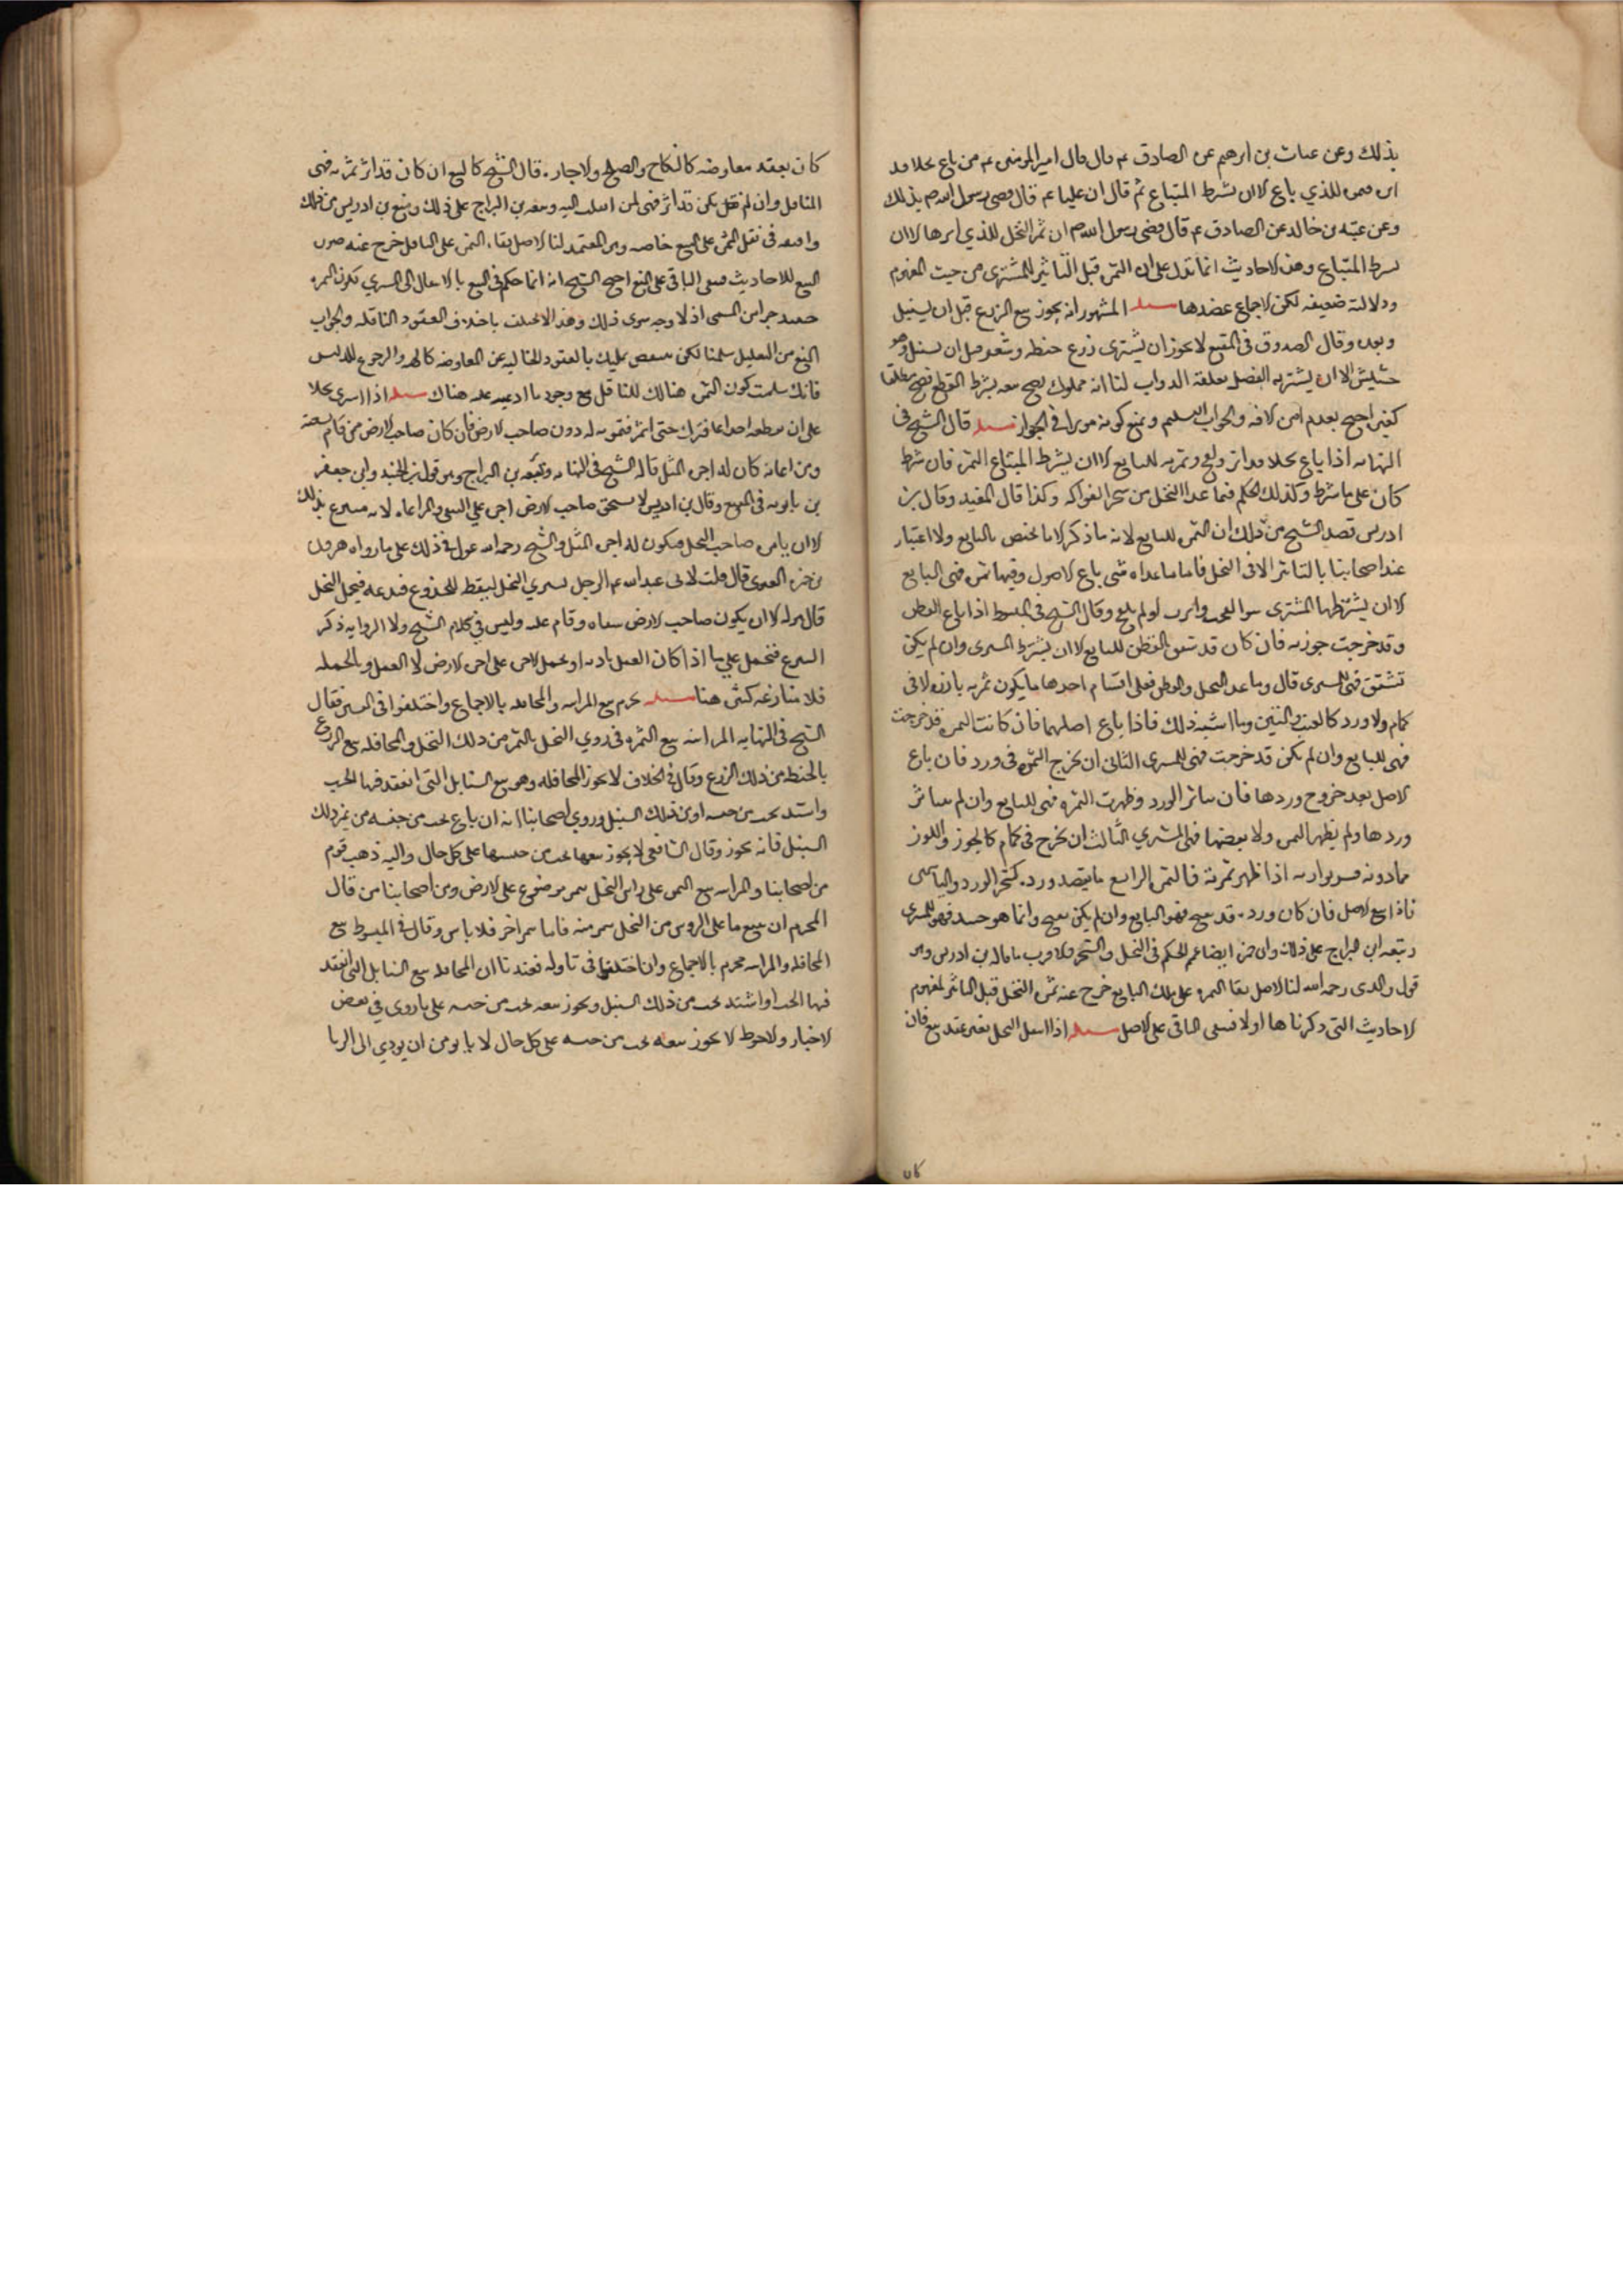 بذلك وعن غياث بن ابرهيم عن الصادق ع قال قال امير المومنين ع من باع نخلا قد
ابر فثمرته للذي باع الا ان يشترط المبتاع ثم قال ان عليا ع قال قضى رسول الله ص بذلك
وعن عقبة بن خالد عن الصادق ع قال قضى رسول الله ص ان ثمر النخل للذي ابرها الا ان
يشترط المبتاع وهذه الاحاديث انما تدل على ان الثمرة قبل التأبير للمشتري من حيث المفهوم
ودلالته ضعيفه لكن الاجماع عضدها مسئلة المشهور انه يجوز بيع الزرع قبل ان يسنبل
وبعده وقال الصدوق في المقنع لا يجوز ان يشترى زرع حنطه وشعير قبل ان يسنبل وهو
حشيش الا ان يشتريه القصيل يعلفه الدواب لنا انه مملوك يصح بيعه بشرط القطع فصح مطلقا
كغيره احتج بعدم امن الافه والجواب التسليم ونمنع كونه موثرا في الجواز مسئلة قال الشيخ في
النهايه اذا باع نخلا قد ابر ولقح فثمرته للبايع الا ان يشترط المبتاع الثمرة فان شرط
كان على ما شرط وكذلك الحكم فيما عدا النخل من شجر الفواكه وكذا قال المفيد وقال بن
ادريس قصد الشيخ من ذلك ان الثمرة للبايع لانه ما ذكر الا ما يختص بالبايع ولا اعتبار
عند اصحابنا بالتابير الا في النخل فاما ما عداه متى باع الاصول وفيها ثمرة فهي للبايع
الا ان يشترطها المشتري سوا لقحت وابرت او لم يلقح وقال الشيخ في المبسوط اذا باع القطن
وقد خرجت جوزته فان كان قد تشقق فالقطن للبايع الا ان يشترط المشتري وان لم يكن
تشقق فهي للمشتري قال وما عدا النخل والقطن فعلى اقسام احدها ما يكون ثمرته بارزه لا في
كمام ولا ورد كالعنب والتين وما اشبه ذلك فاذا باع اصلها فان كانت الثمرة قد خرجت
فهي للبايع وان لم تكن قد خرجت فهي للمشتري الثاني ان تخرج الثمرة في ورد فان باع
الاصل بعد خروج وردها فان تناثر الورد وظهرت الثمرة فهي للبايع وان لم يتناثر
وردها ولم يظهر الثمرة ولا بعضها فهي للمشتري الثالث ان تخرج في كمام كالجوز واللوز
مما دونه قشر يواريه اذا ظهر ثمرته فالثمرة الرابع ما يقصد ورده كشجر الورد والياسمين
فاذا بيع الاصل فان كان ورده قد تفتح فهو للبايع وان لم يكن تفتح وانما هو جنبذ فهو للمشتري
وتبعه ابن البراج على ذلك وابن حمزة ايضا عمم الحكم في النخل والشجر والاقرب ما قاله بن ادريس وهو
قول والدي رحمه الله لنا الاصل بقا الثمرة على ملك البايع خرج عنه ثمرة النخل قبل التأبير لمفهوم
الاحاديث التي ذكرناها اولا فيبقى الباقي على الاصل مسئلة اذا انتقل النخل بغير عقد بيع فان
كان بعقد معاوضه كالنكاح والصلح والاجارة قال الشيخ كالبيع ان كان قد ابر ثمرته فهي
للناقل وان لم يكن قد ابر فهي لمن انتقل اليه وتبعه بن البراج على ذلك ومنع بن ادريس من ذلك
واقتصر في نقل الثمرة على البيع خاصه وهو المعتمد لنا الاصل بقاء الثمرة على الناقل خرج عنه صورة
البيع للاحاديث فيبقى الباقي على المنع احتج الشيخ انه انما حكم في البيع بالانتقال الى المشتري لكون الثمرة
حينئذ جزا من المسمى اذ لا وجه سوى ذلك وهذا لا يختلف باختلاف العقود الناقله والجواب
المنع من التعليل سلمنا لكن ينتقض عليك بالعقود الخاليه عن المعاوضه كالهبه والرجوع للتفليس
فانك سلمت كون الثمرة هنالك للناقل مع وجود ما ادعيته علة هناك مسئلة اذا اشترى نخلا
على ان يقطعه اجذاعا فتركه حتى اثمر فثمرته له دون صاحب الارض فان كان صاحب الارض ممن قام بسقيه
ومراعاته كان له اجرة المثل قاله الشيخ في النهايه وتبعه بن البراج وهو قول بن الجنيد وابي جعفر
بن بابويه في المقنع وقال بن ادريس لا يستحق صاحب الارض اجرة على السقي والمراعاة لانه متبرع بذلك
الا ان يامره صاحب النخل فيكون له اجرة المثل والشيخ رحمه الله عول في ذلك على ما رواه هرون
بن حمزة الغنوي قال قلت لابي عبد الله ع الرجل يشتري النخل ليقطعه للجذوع فيدعه فيحمل النخل
قال هو له الا ان يكون صاحب الارض سقاه وقام عليه وليس في كلام الشيخ ولا الروايه ذكر
التبرع فتحمل على ما اذا كان العمل باذنه او تحمل الاجرة على اجرة الارض لا العمل وبالجمله
فلا منازعه كثيرة هنا مسئلة يحرم بيع المزابنه والمحاقله بالاجماع واختلفوا في التفسير فقال
الشيخ في النهايه المزابنه بيع الثمرة في روس النخل بالتمر من ذلك النخل والمحاقله بيع الزرع
بالحنطه من ذلك الزرع وقال في الخلاف لا يجوز المحاقله وهو بيع السنابل التي انعقد فيها الحب
واشتد بحب من جنسه او من ذلك السنبل وروى اصحابنا انه ان باع بحب من جنسه من غير ذلك
السنبل فانه يجوز وقال الشافعي لا يجوز بيعها بحب من جنسها على كل حال واليه ذهب قوم
من اصحابنا والمزابنه بيع الثمر على راس النخل بتمر موضوع على الارض ومن اصحابنا من قال
المحرم ان يبيع ما على الروس من النخل بتمر منه فاما بتمر اخر فلا باس وقال في المبسوط بيع
المحاقله والمزابنه محرم بالاجماع وان اختلفوا في تاوله فعندنا ان المحاقله بيع السنابل التي انعقد
فيها الحب واشتد بحب من ذلك السنبل ويجوز بيعه بحب من جنسه على ما روي في بعض
الاخبار والاحوط لا يجوز بيعه بحب من جنسه على كل حال لانا لا نومن ان يودي الى الربا
كان